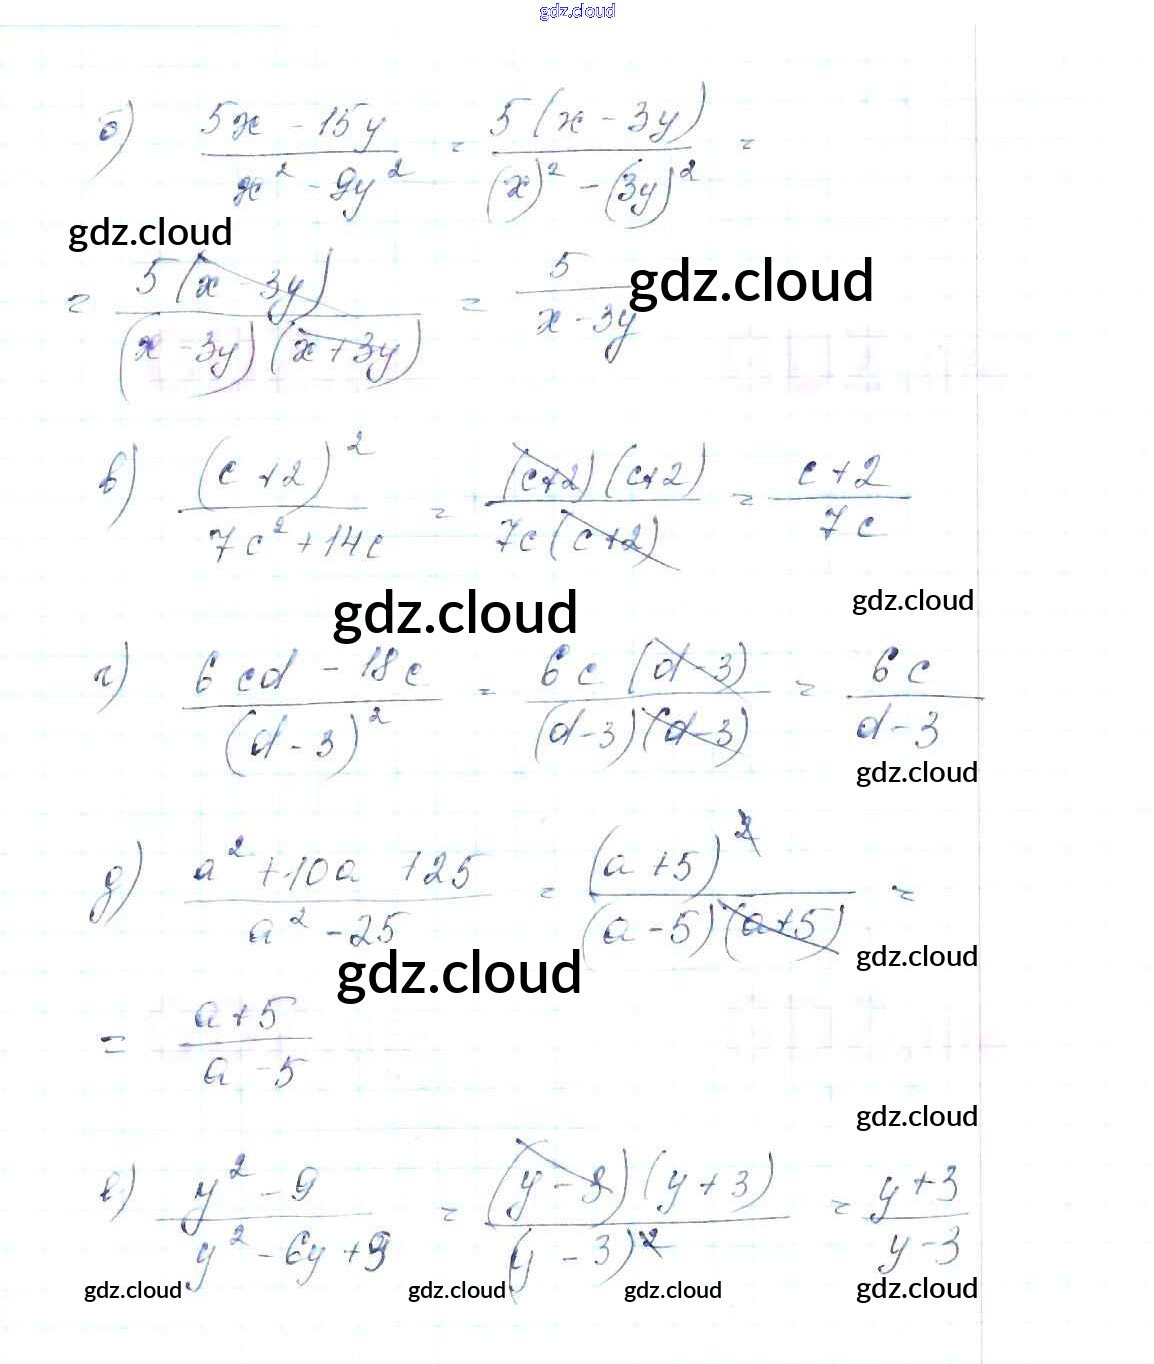 gdz.cloud
б) (5x - 15y)/(x² - 9y²) = 5(x - 3y)/((x)² - (3y)²) =
gdz.cloud
= 5(x - 3y)/((x - 3y)(x + 3y)) = 5/(x - 3y) gdz.cloud
в) (c + 2)²/(7c² + 14c) = (c+2)(c+2)/(7c(c+2)) = (c + 2)/(7c)
gdz.cloud gdz.cloud
г) (6cd - 18c)/(d - 3)² = 6c(d - 3)/((d - 3)(d - 3)) = 6c/(d - 3)
gdz.cloud
д) (a² + 10a + 25)/(a² - 25) = (a + 5)²/((a - 5)(a + 5)) =
gdz.cloud gdz.cloud
= (a + 5)/(a - 5)
gdz.cloud
е) (y² - 9)/(y² - 6y + 9) = (y - 3)(y + 3)/(y - 3)² = (y + 3)/(y - 3)
gdz.cloud gdz.cloud gdz.cloud gdz.cloud